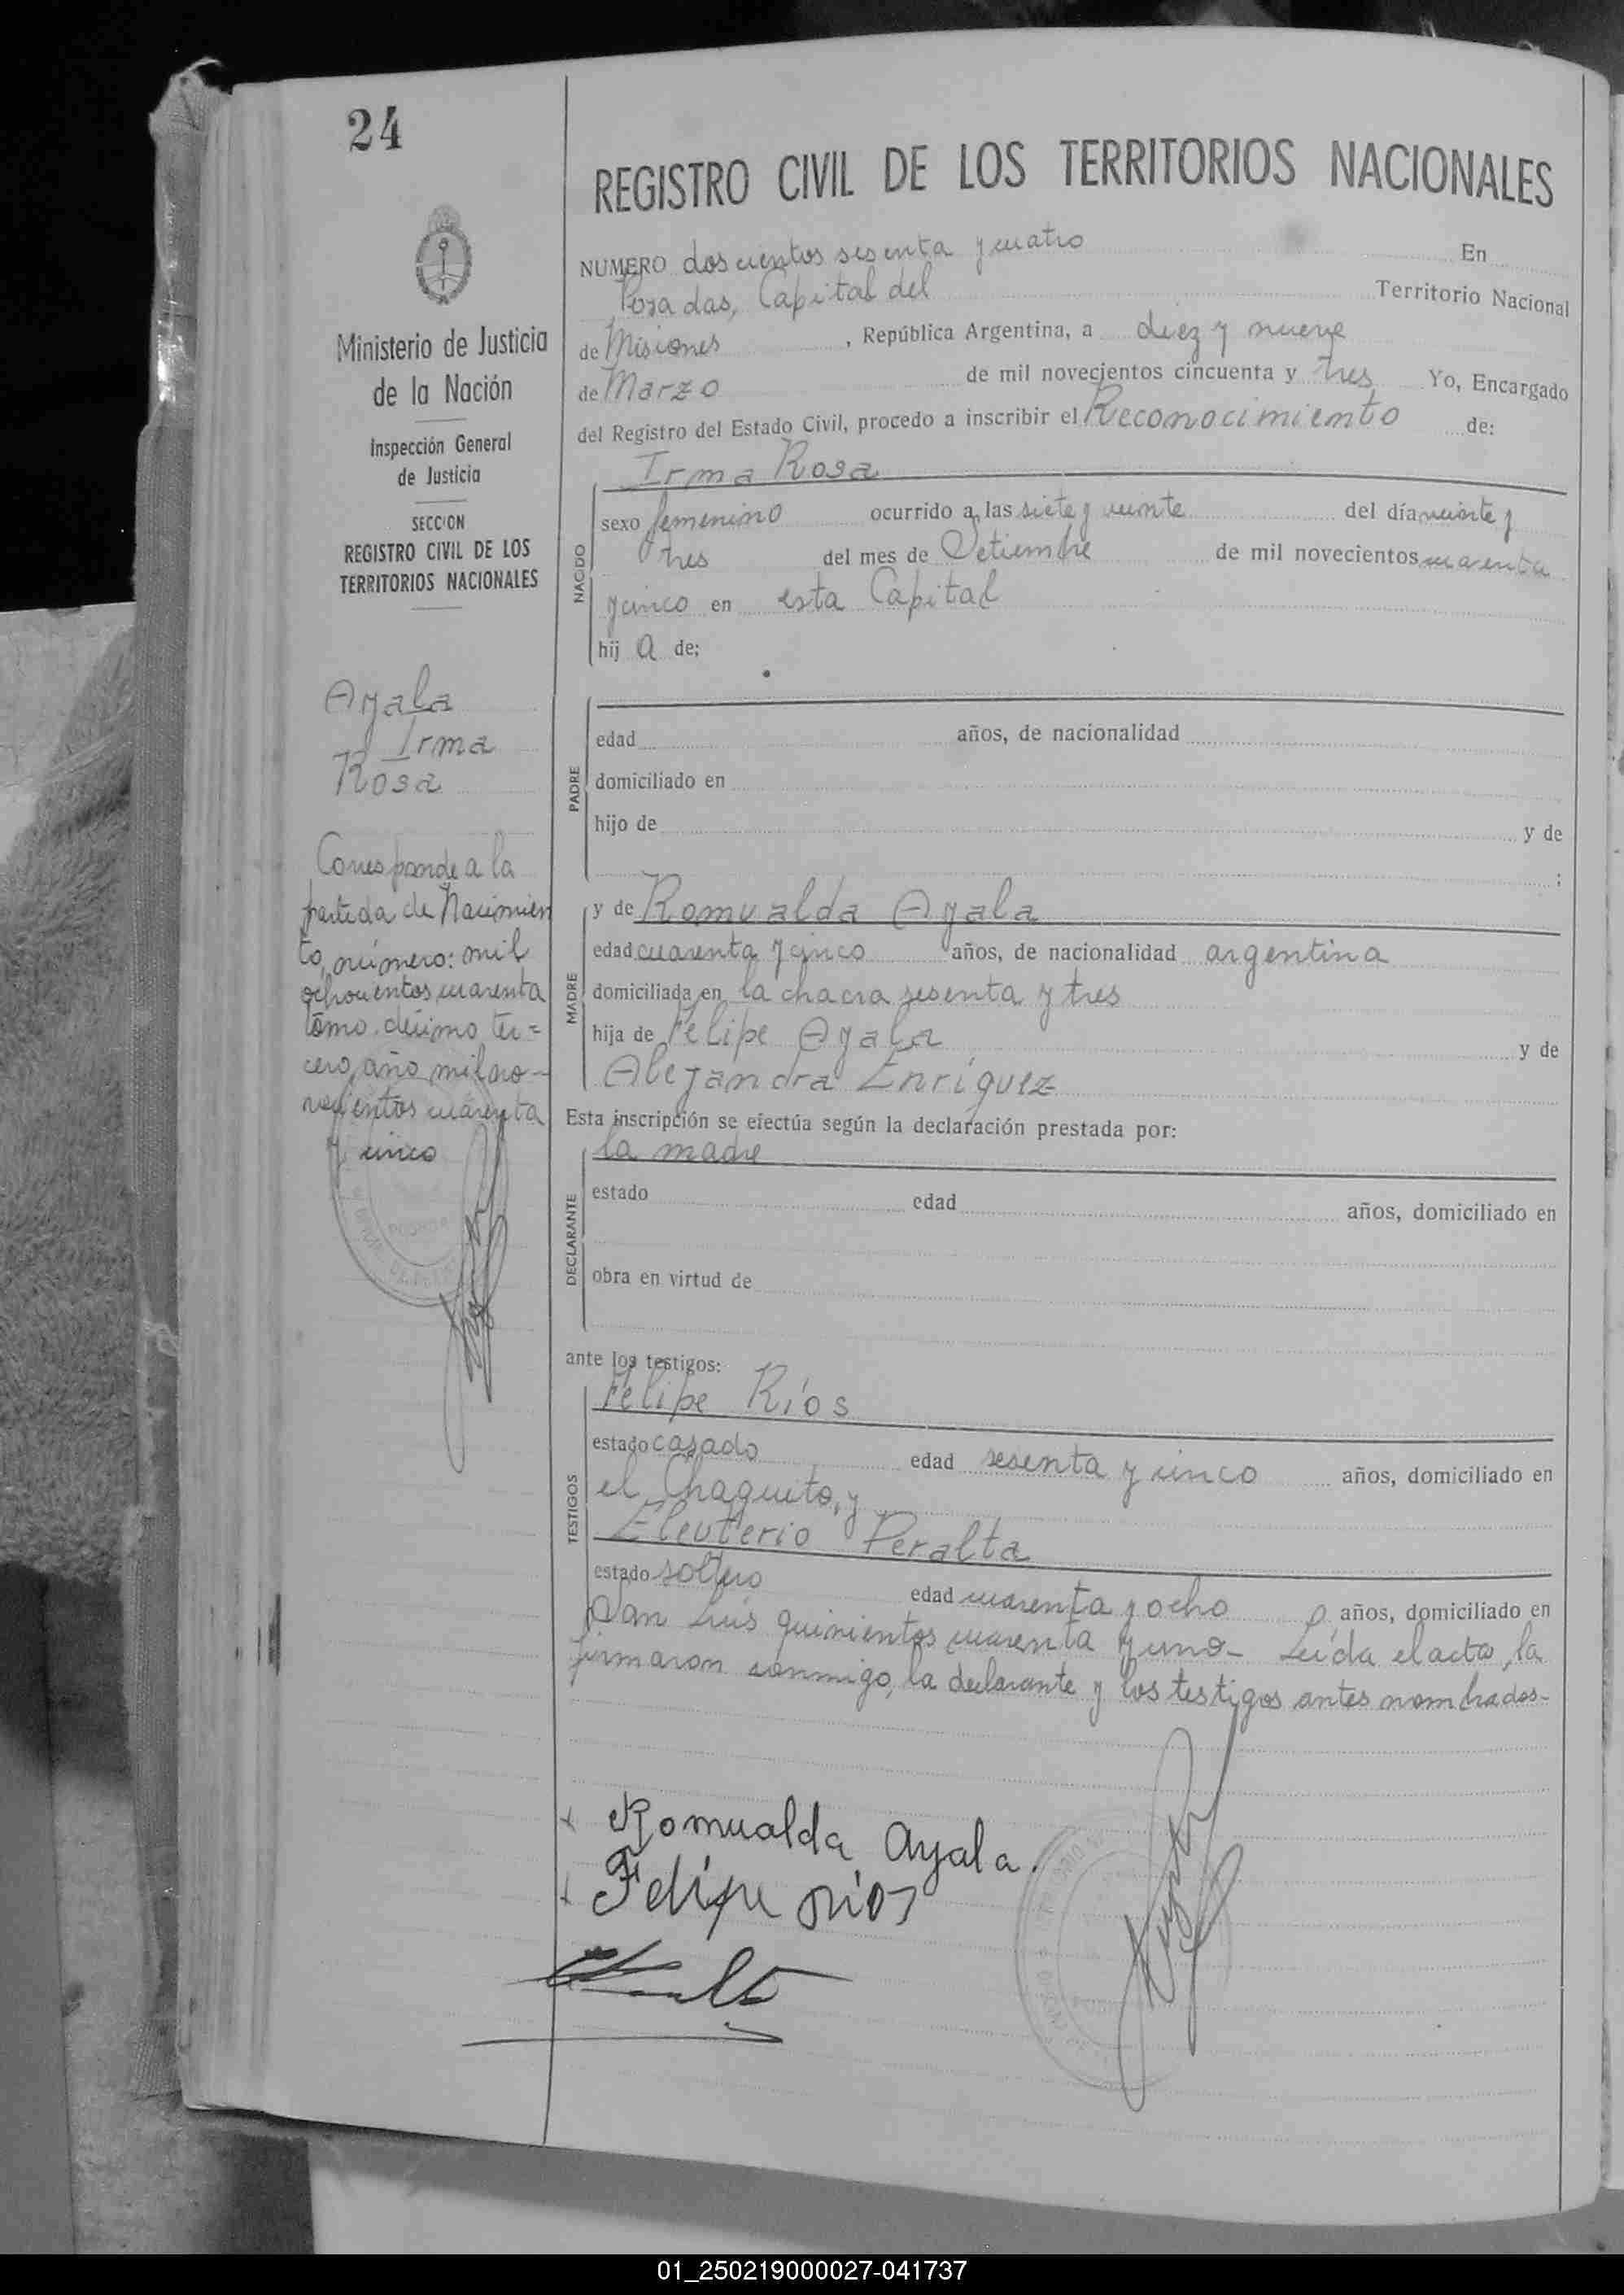 24
Ministerio de Justicia
de la Nación
Inspección General
de Justicia
SECCION
REGISTRO CIVIL DE LOS
TERRITORIOS NACIONALES
Ayala
Irma
Rosa
Corresponde a la
partida de Nacimien
to, número: mil
ochocientos cuarenta
tomo décimo ter=
cero, año mil no-
vecientos cuarenta
y cinco
REGISTRO CIVIL DE LOS TERRITORIOS NACIONALES
NUMERO doscientos sesenta y cuatro En
Posadas, Capital del Territorio Nacional
de Misiones, República Argentina, a diez y nueve
de Marzo de mil novecientos cincuenta y tres Yo, Encargado
del Registro del Estado Civil, procedo a inscribir el Reconocimiento de:
Irma Rosa
NACIDO
sexo femenino ocurrido a las siete y veinte del día veinte y
tres del mes de Setiembre de mil novecientos cuarenta
y cinco en esta Capital
hij a de:
PADRE
edad años, de nacionalidad
domiciliado en
hijo de y de
;
MADRE
y de Romualda Ayala
edad cuarenta y cinco años, de nacionalidad argentina
domiciliada en la chacra sesenta y tres
hija de Felipe Ayala y de
Alejandra Enríquez
Esta inscripción se efectúa según la declaración prestada por:
la madre
DECLARANTE
estado edad años, domiciliado en
obra en virtud de
ante los testigos:
TESTIGOS
Felipe Ríos
estado casado edad sesenta y cinco años, domiciliado en
el Chaquito, y
Eleuterio Peralta
estado soltero edad cuarenta y ocho años, domiciliado en
San Luis quinientos cuarenta y uno- Leída el acta, la
firmaron conmigo, la declarante y los testigos antes nombrados-
Romualda Ayala.
Felipe rios
01_250219000027-041737